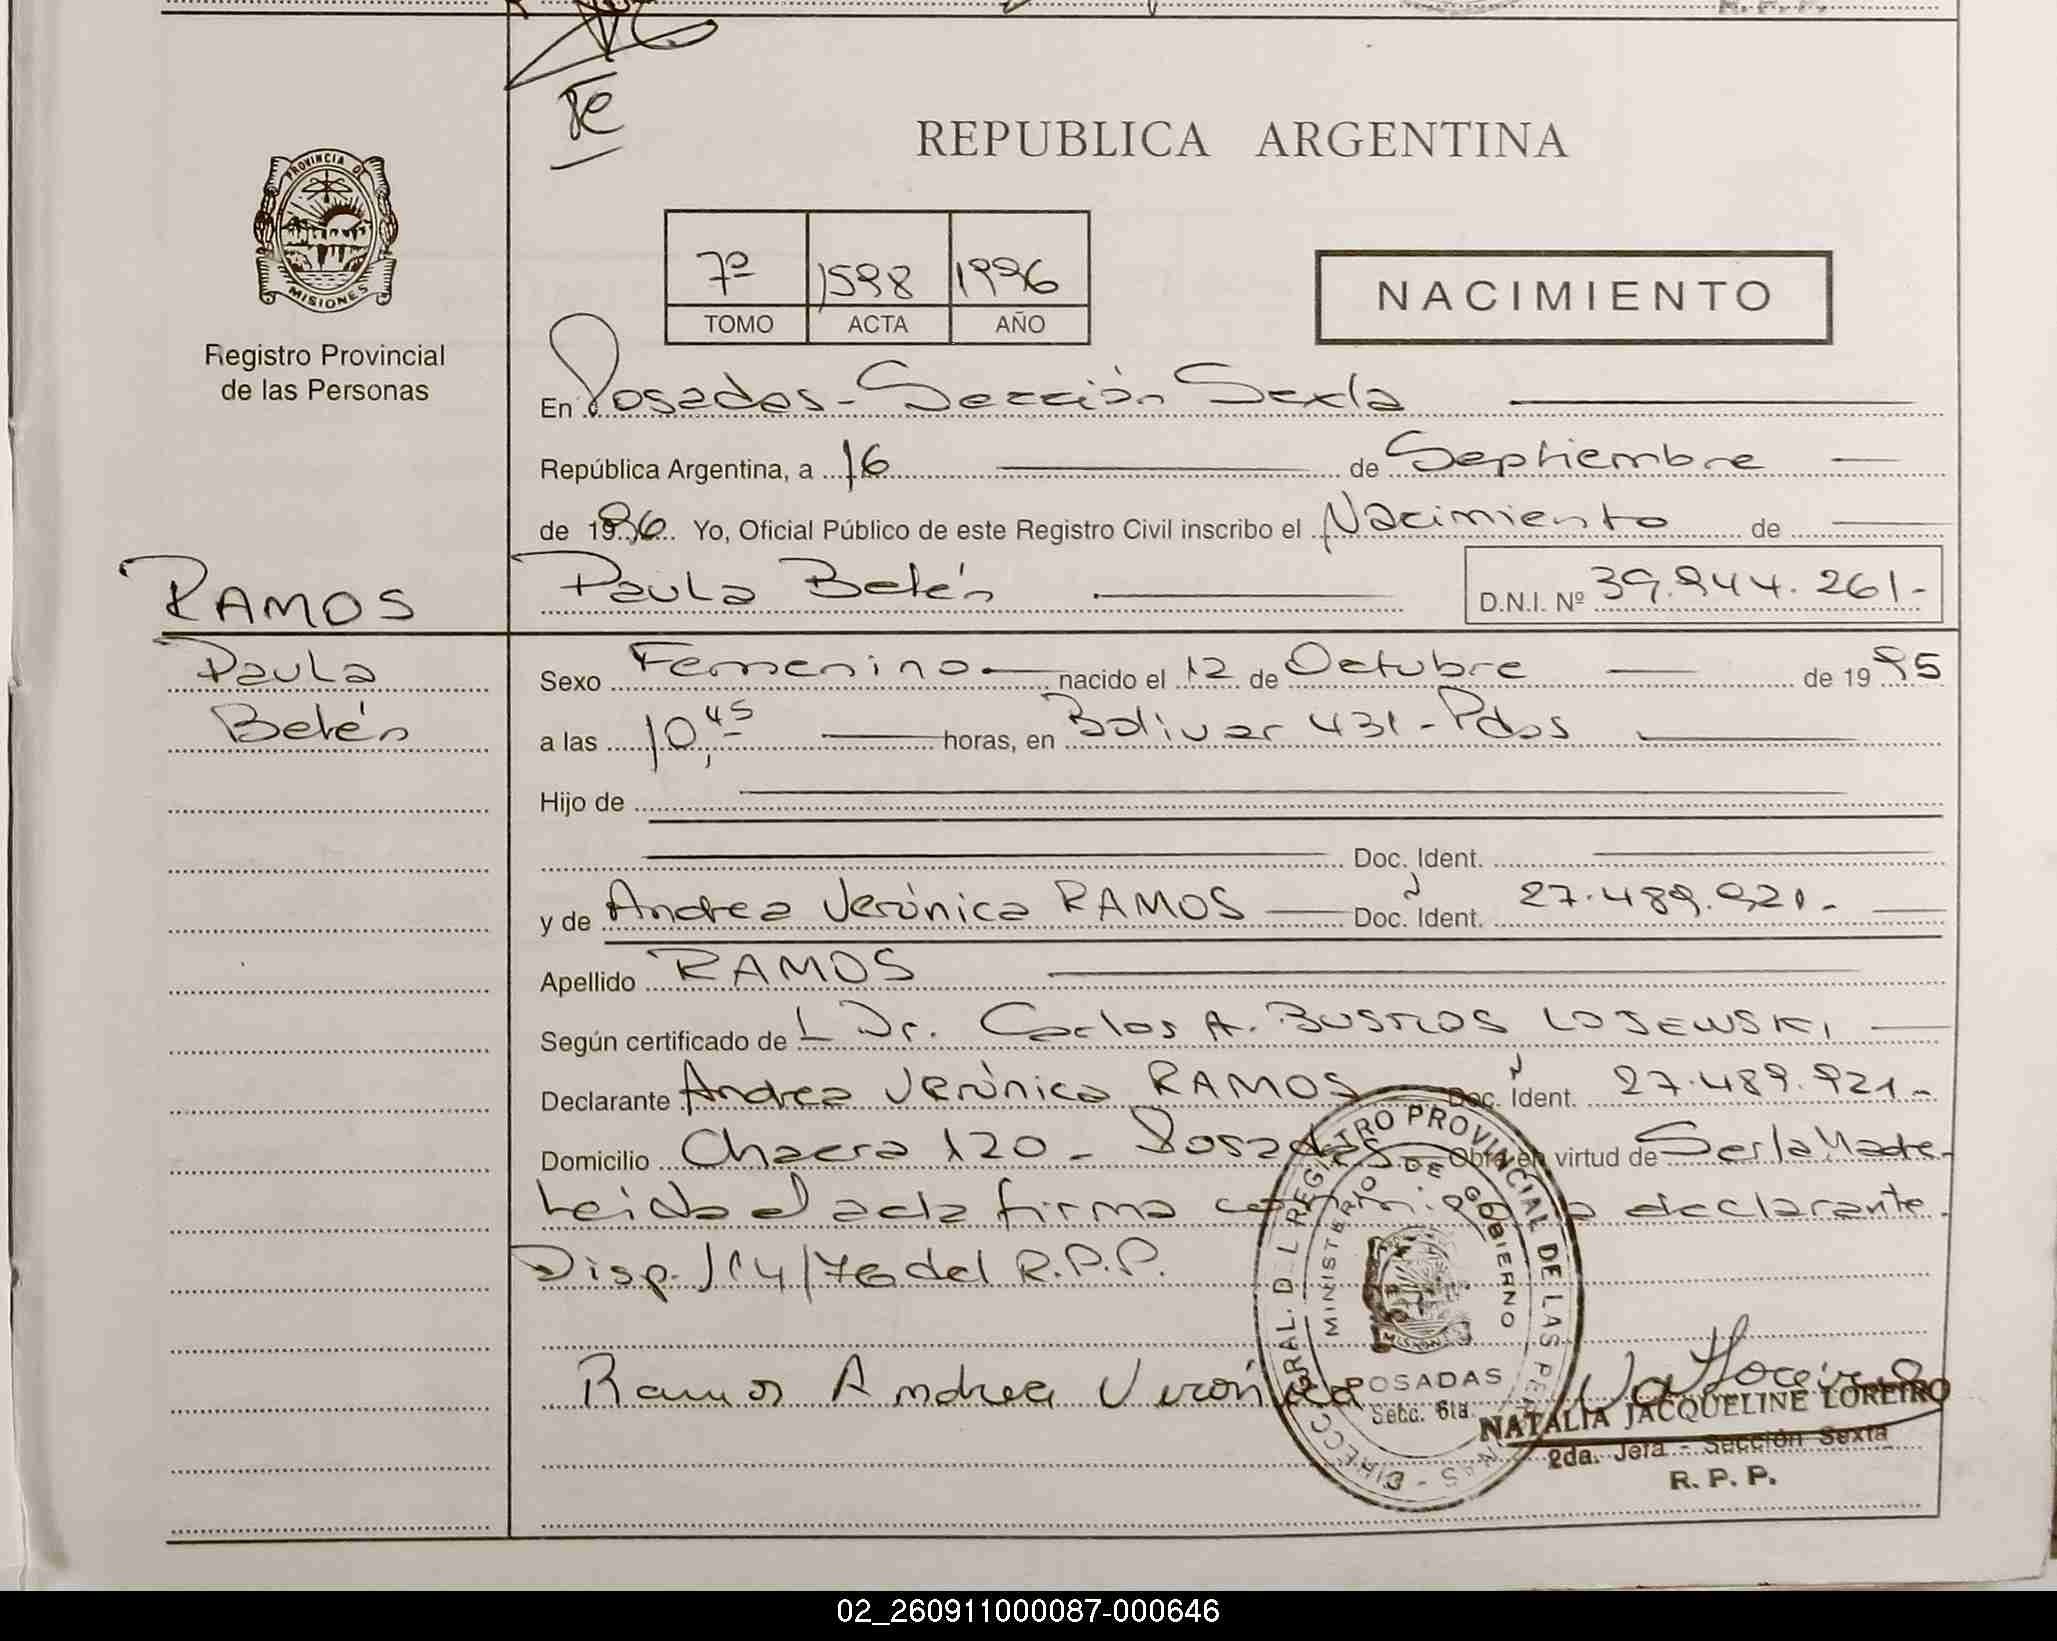 PROVINCIA DE
MISIONES
Registro Provincial
de las Personas
REPUBLICA ARGENTINA
7º 1598 1996
TOMO ACTA AÑO
NACIMIENTO
En Posadas - Sección Sexta
República Argentina, a 16 de Septiembre
de 1996. Yo, Oficial Público de este Registro Civil inscribo el Nacimiento de
RAMOS Paula Belén D.N.I. Nº 39.944.261-
Paula Sexo Femenino nacido el 12 de Octubre de 1995
Belén a las 10,45 horas, en Bolivar 431 - Pdas
Hijo de
Doc. Ident.
y de Andrea Verónica RAMOS Doc. Ident. 27.489.921-
Apellido RAMOS
Según certificado de L Dr. Carlos A. BUSTOS LOSEWSKI
Declarante Andrea Verónica RAMOS Doc. Ident. 27.489.921-
Domicilio Chacra 120 - Posadas Obra en virtud de Ser la Madre-
Leida el acta firma conmigo la declarante.
Disp. 114/76 del R.P.P.
Ramos Andrea Verónica
DIRECC GRAL. D L REGISTRO PROVINCIAL DE LAS PERSONAS -
MINISTERIO DE GOBIERNO
MISIONES
POSADAS
Secc. 6ta.
NATALIA JACQUELINE LOREIRO
2da. Jefa - Sección Sexta
R. P. P.
02_260911000087-000646